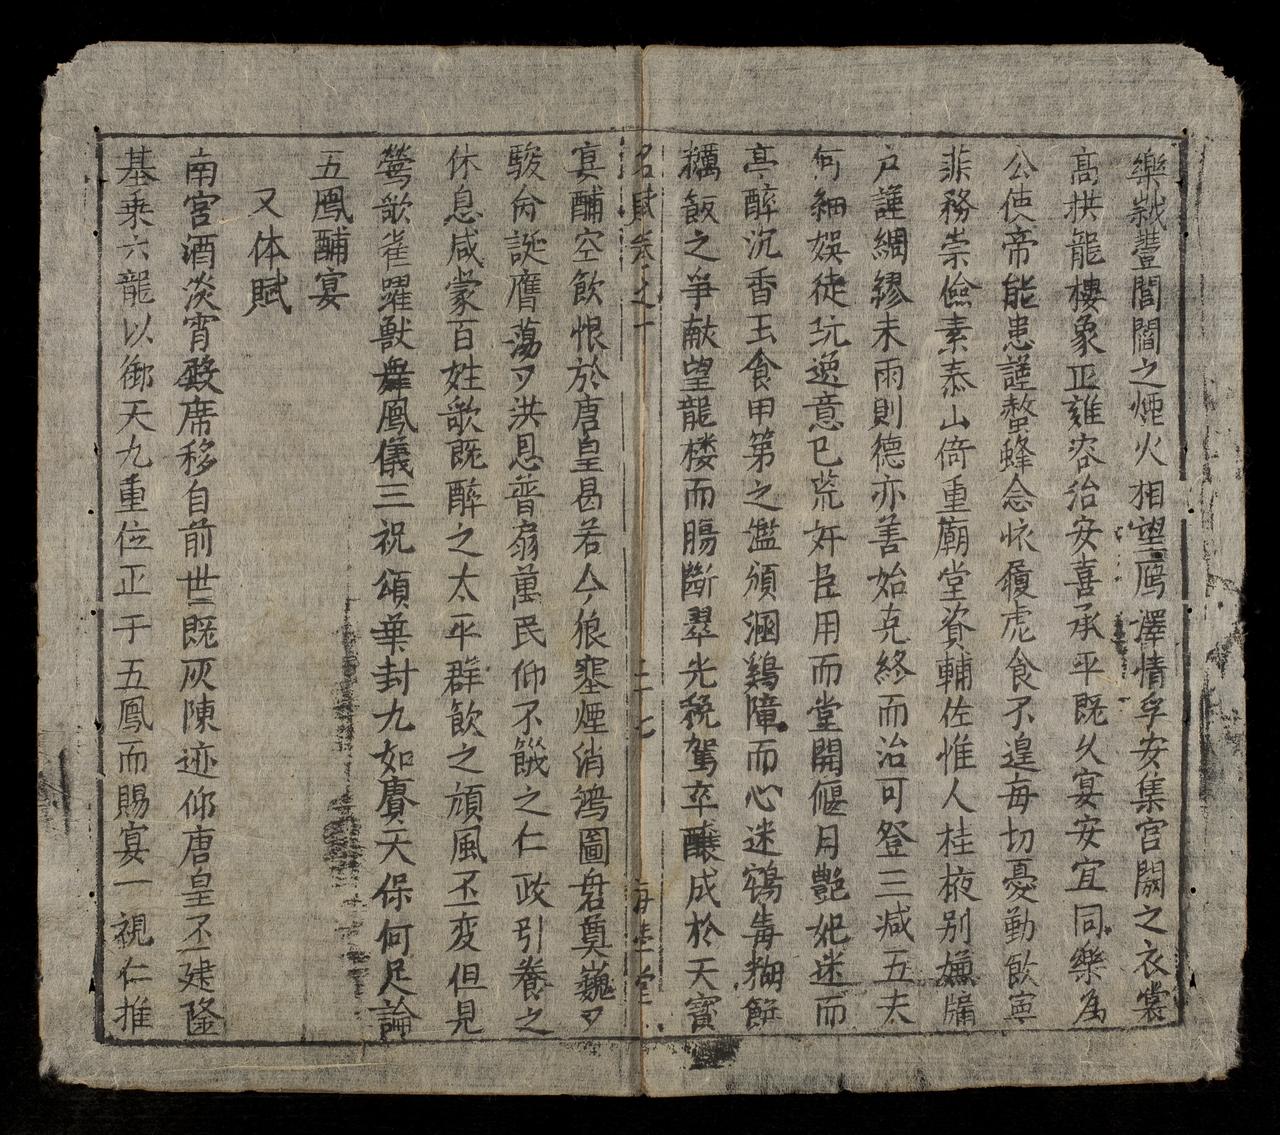 樂歲豐閭閻之煙火相望鴈澤情孚安集宮闕之衣裳
高拱龍樓象正雍容治安喜承平既久宴安宜同樂為
公使帝能患謹螫蜂念怀履虎食不遑每切憂勤飲寧
非務崇儉素泰山倚重廟堂資輔佐惟人桂掖別嬪牖
戶謹綢繆未雨則德亦善始克終而治可登三咸五夫
何細娛徒玩逸意已荒奸臣用而堂開偃月艷妃迷而
亭醉沉香玉食甲第之濫頒涸鷄障而心迷鴆毒糊餅
糲飯之爭献望龍楼而腸斷翠光稅駕卒釀成於天寶
名賦卷之一 三七 海
宴酺空飲恨於唐皇曷若今狼塞煙消鴻圖磐奠巍々
駿命誕膺蕩々洪恩普扇萬民仰不饑之仁政引養之
休息咸蒙百姓歌既醉之太平群飲之頑風丕変但見
鶯歌雀躍獸舞鳳儀三祝頌華封九如賡天保何足論
五鳳酺宴
又体賦
南宮酒淡宵殿席移自前世既灰陳迹仰唐皇丕建隆
基乗六龍以御天九重位正于五鳳而賜宴一視仁推